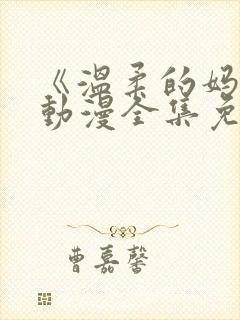 《温柔的妈
动漫全集免
曹嘉馨